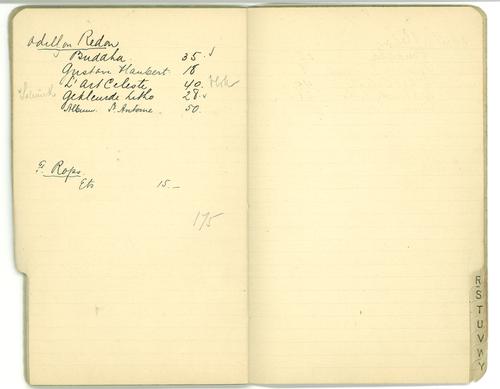 Odillon Redon
Buddha 35.
Gustave Flaubert 18
L'Art Celeste 40.
Gekleurde Litho 28.
Album. St Antoine. 50.
F. Rops.
Ets 15.–
175
R
S
T
U
V
W
Y